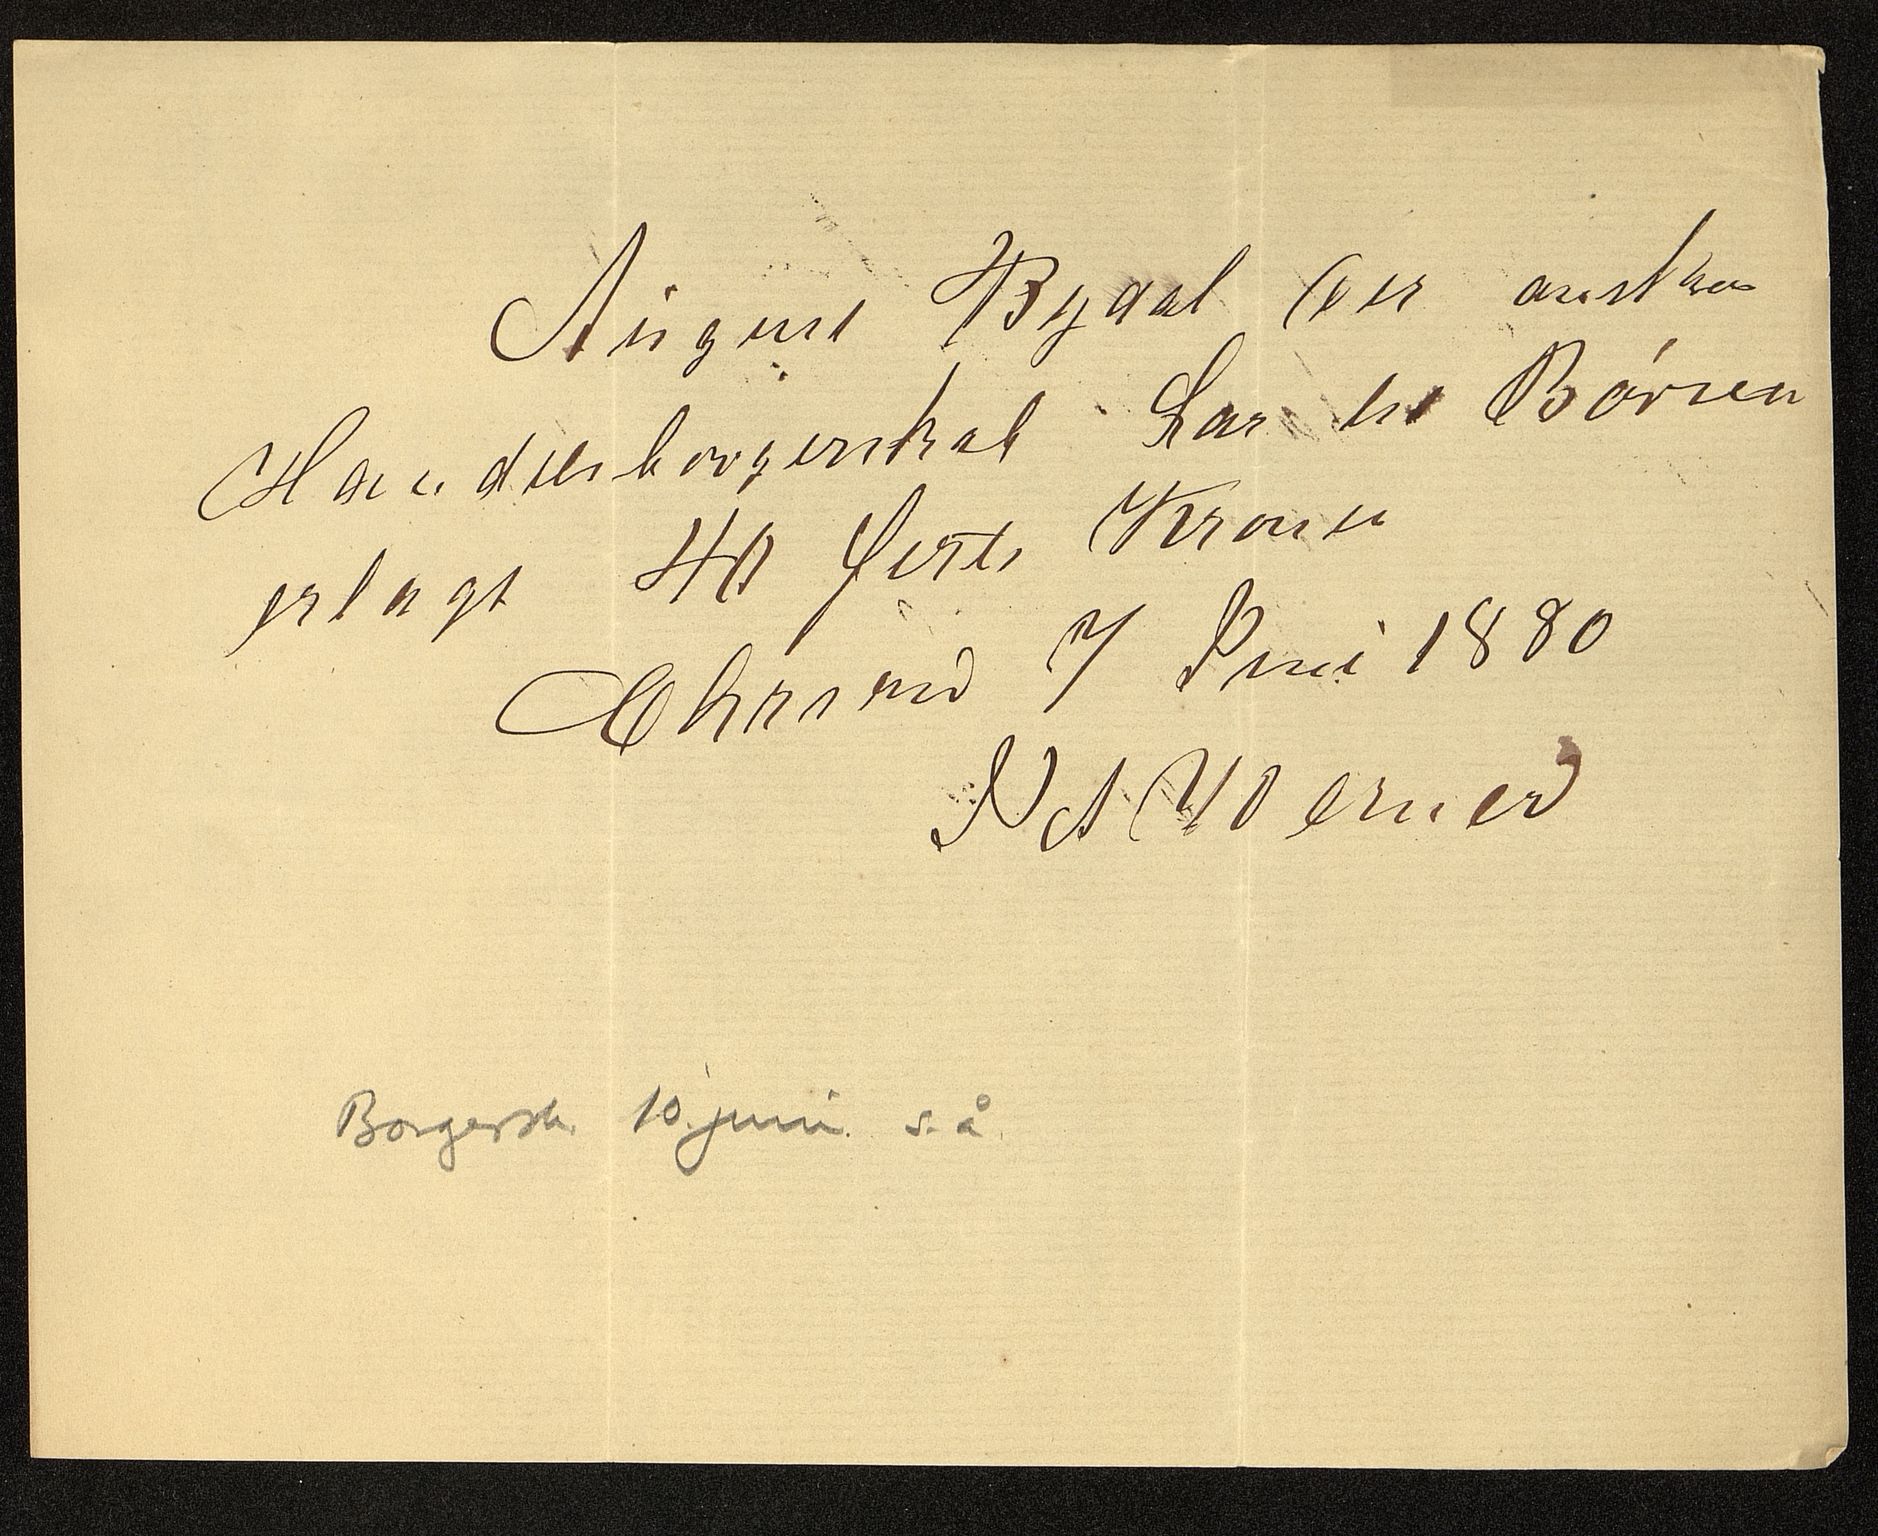 August Bydal der ansker
Handelsborgerskab har til Børsen
erlagt 40 firti Kroner
Chrsand 7 Juni 1880
N A Werner
Borgersk. 10. juni s. å.